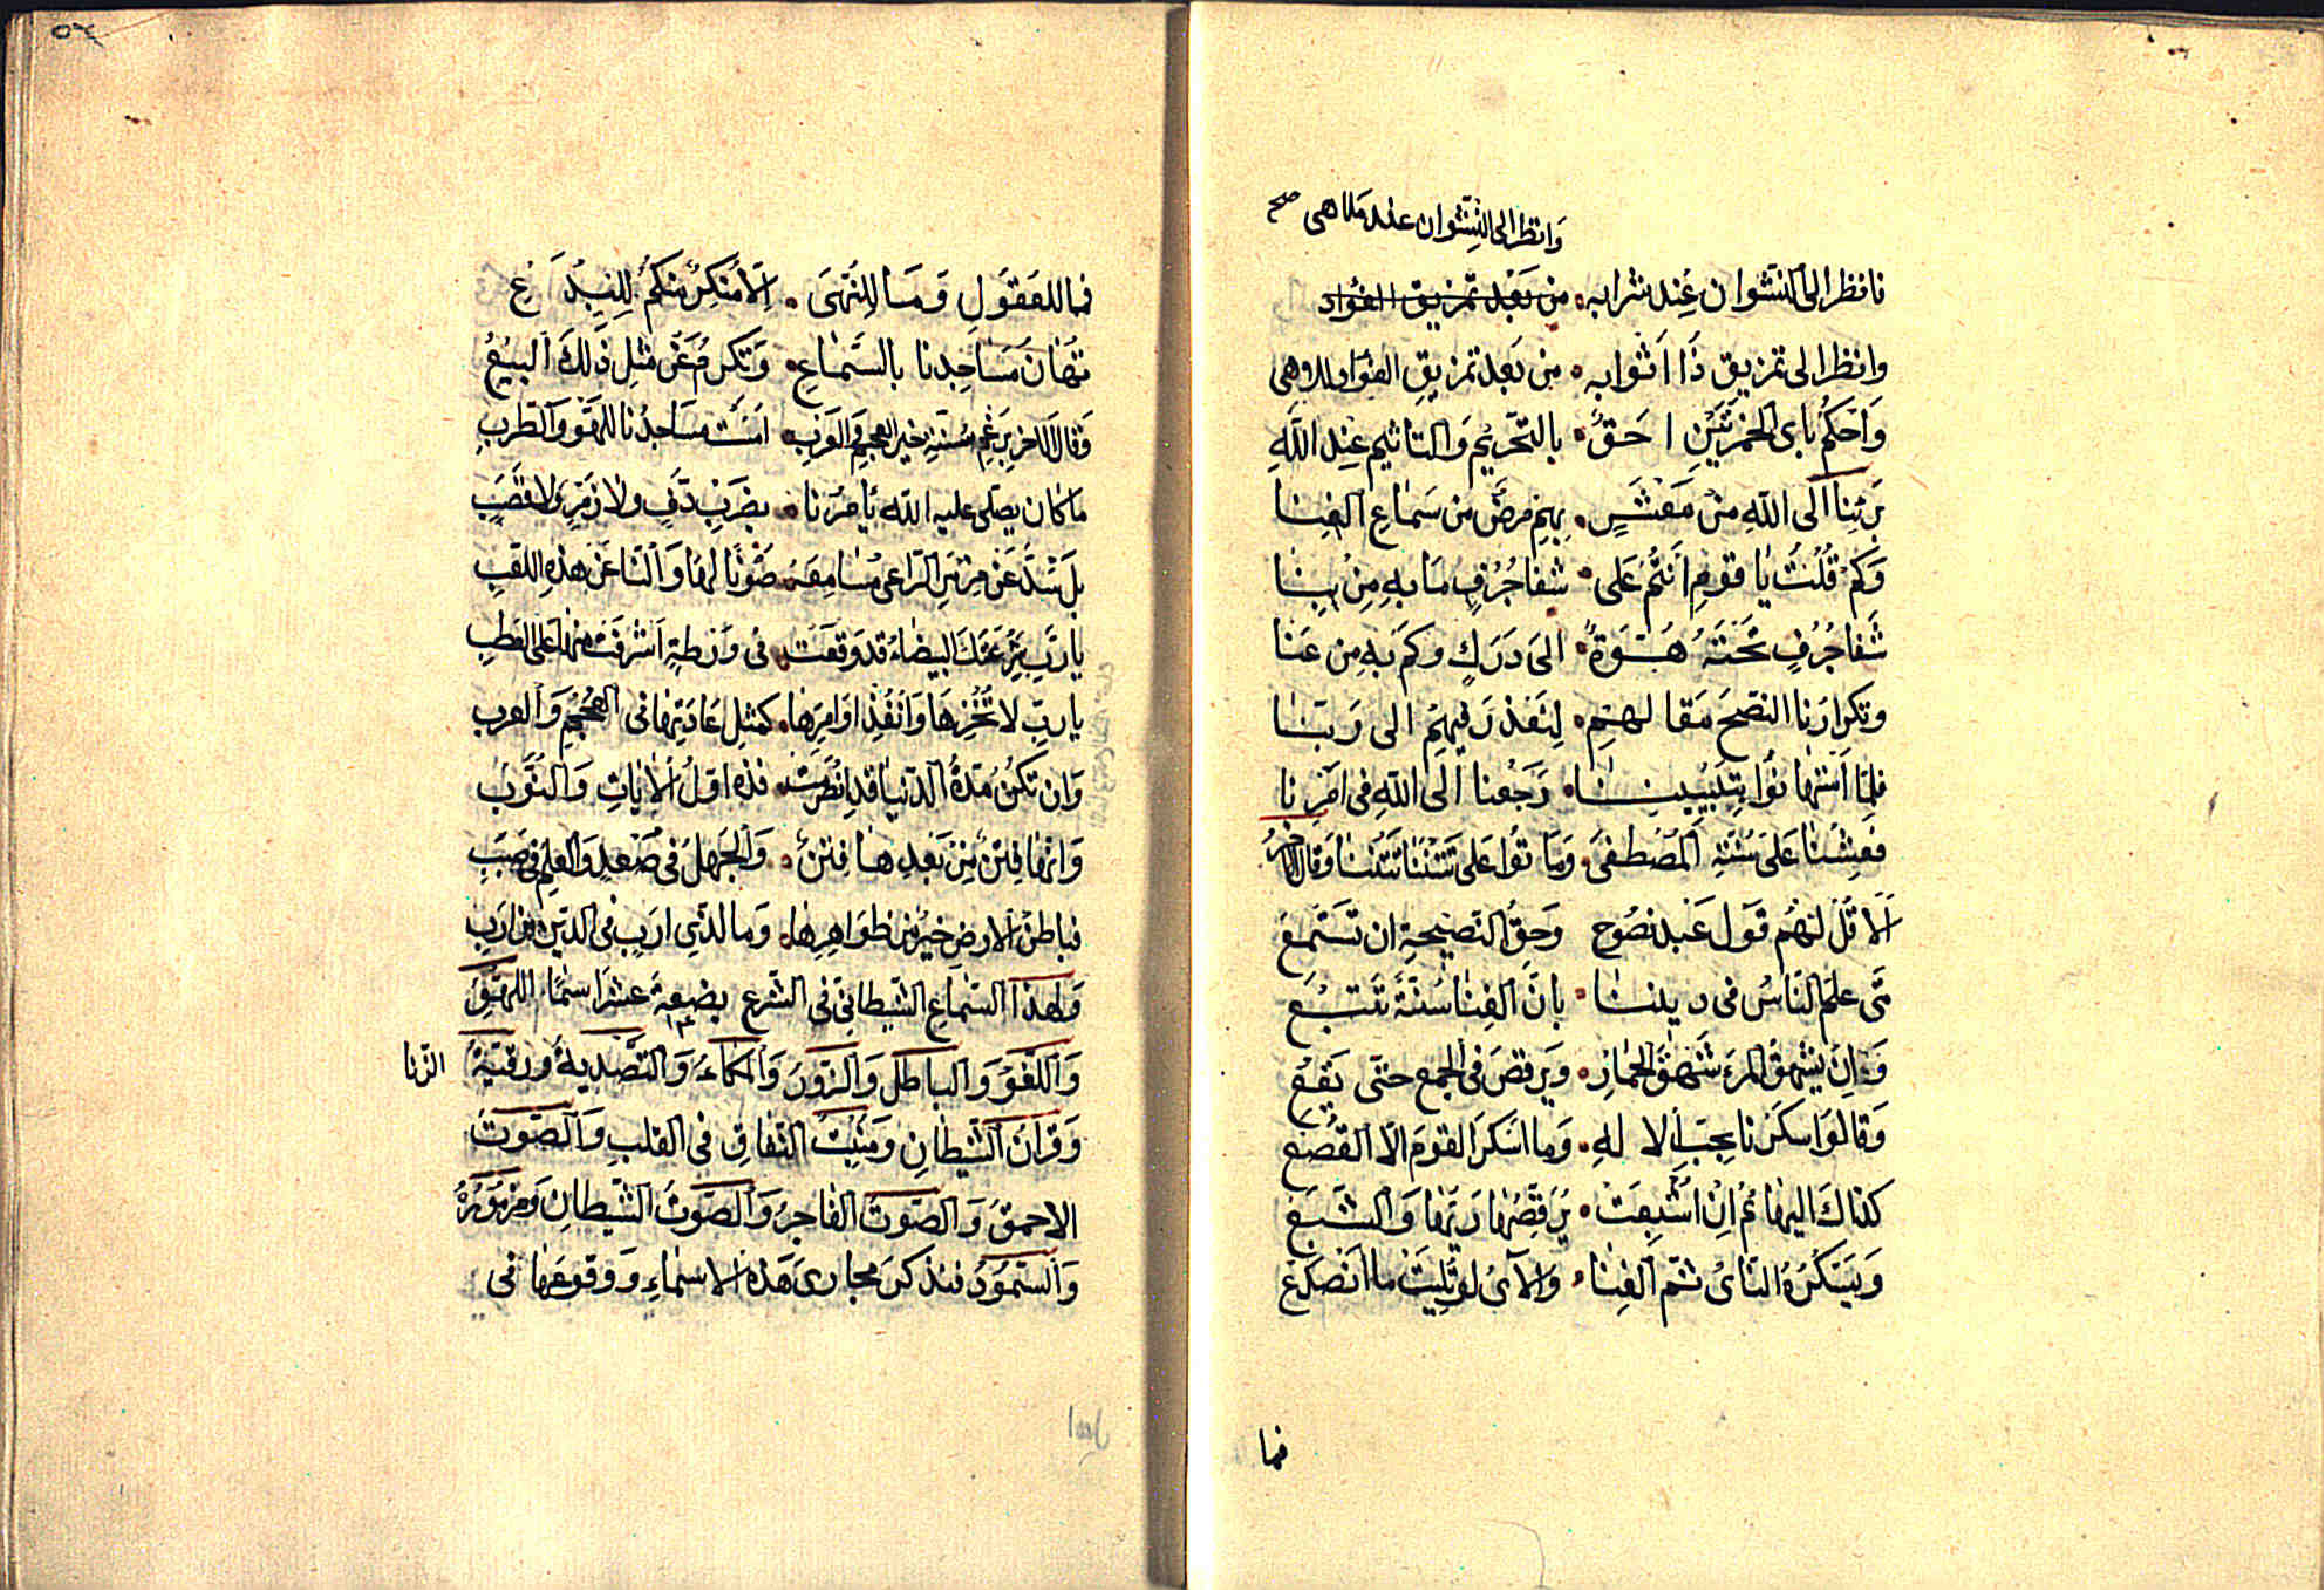 وانظر الى النشوان عند ملاهى صح
فانظر الى النشوان عند شرابه من بعد تمزيق الفؤاد
وانظر الى تمزيق ذا اثوابه من بعد تمزيق الفؤاد اللاهى
واحكم باى الخمرتين احق بالتحريم والتاثيم عند الله
برئنا الى الله من معشر بهم مرض من سماع الغنا
وكم قلت يا قوم انتم على شفا جرف ما به من بنا
شفا جرف تحته هوة الى درك وكم به من عنا
وتكرارنا النصح مقا لهم لنعذر فيهم الى ربنا
فلما استهانوا بتنبيهنا رجعنا الى الله فى امرنا
فعشنا على سنة المصطفى وماتوا على تنتنا تنتنا وقال اخر
الا قل لهم قول عبد نصوح وحق النصيحة ان تستمع
متى علم الناس فى ديننا بان الغنا سنة تتبع
وان يشهق المرء شهق الحمار ويرقص فى الجمع حتى يقع
وقالوا سكرنا بحب الاله وما اسكر القوم الا القصع
كذاك البهائم ان اشبعت يرقصها ريها والشبع
ويسكره الناى ثم الغنا والآى لو تليت ما انصدع
فما
فما للعقول وما للنهى الا منكر منكم للبدع
تهان مساجدنا بالسماع وتكرم عن مثل ذلك البيع
وقال الاخر برغم سنة خير العجم والعرب امست مساجدنا للهو والطرب
ما كان يصلى عليه الله يامرنا بضرب دف ولا زمر ولا قصب
بل شد عن مزمر الراعى مسامعه صونا لها والنا عن هذه اللقب
يا رب شرعتك البيضاء قد وقعت فى ورطة اشرفت منها على العطب
يا رب لا تخزها وانفذ اوامرها كمثل عادتها فى العجم والعرب
وان تكن مدة الدنيا قد انصرمت فذه اول الايات والنوب
وانها فتن من بعدها فتن والجهل فى صعد والعلم فى صبب
فباطن الارض خير من ظواهرها وما لذى ارب فى الدين من ارب
ولهذا السماع الشيطانى فى الشرع بضعة عشر اسما اللهو
واللغو والباطل والزور والمكاء والتصدية ورقية الزنا
وقران الشيطان ومنبت النفاق فى القلب والصوت
الاحمق والصوت الفاجر والصوت الشيطان ومزموره
والسمود فنذكر مجارى هذه الاسماء ووقوعها فى